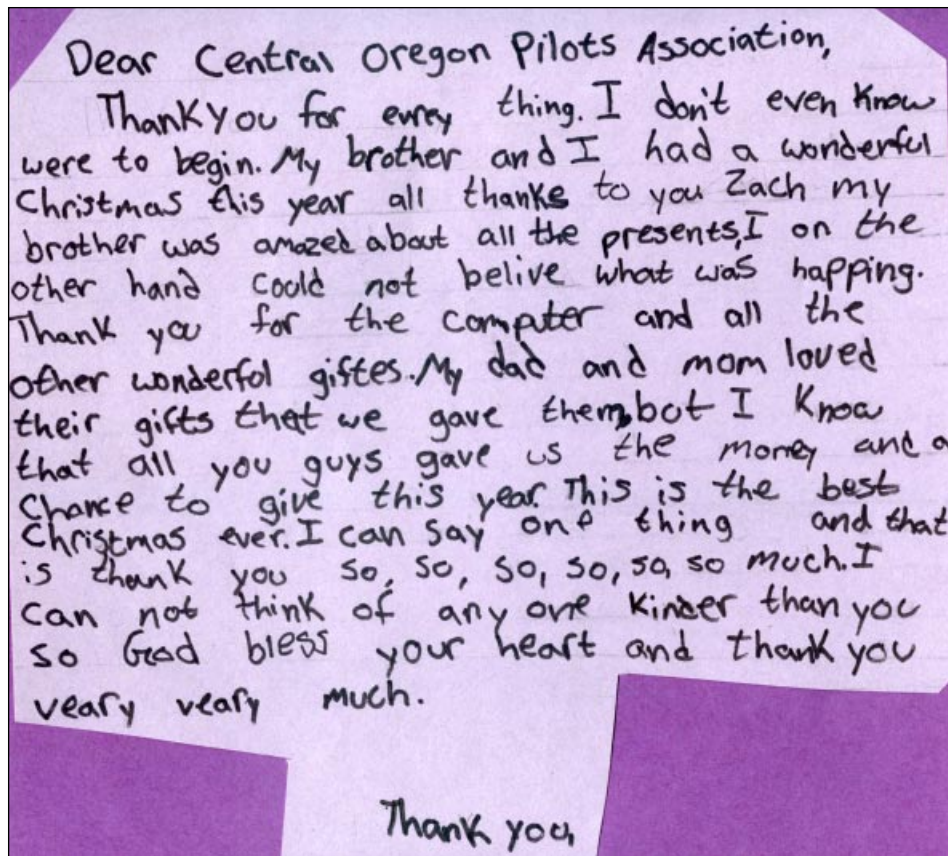 Dear Central Oregon Pilots Association,
Thank you for evrey thing. I don't even know
were to begin. My brother and I had a wonderful
Christmas this year all thanks to you Zach my
brother was amazed about all the presents, I on the
other hand could not belive what was happing.
Thank you for the computer and all the
other wonderful giftes. My dad and mom loved
their gifts that we gave them, but I know
that all you guys gave us the money and a
chance to give this year. This is the best
Christmas ever. I can say one thing and that
is thank you so, so, so, so, so, so much. I
can not think of any one kinder than you
so God bless your heart and thank you
veary veary much.
Thank you,